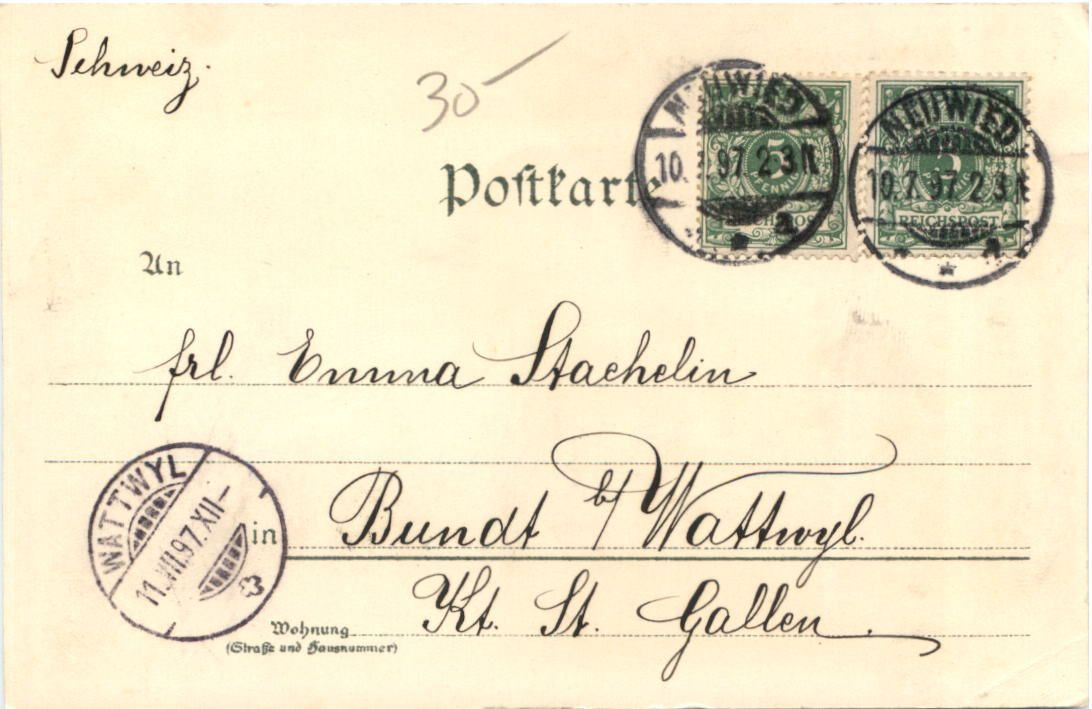 Schweiz.
30-
NEUWIED
10. 7. 97. 2-3 N.
a
5
PFENNIG
REICHSPOST
NEUWIED
10. 7. 97. 2-3 N.
a
5
PFENNIG
REICHSPOST
Postkarte
An
frl. Emma Stachelin
WATTWYL
11.VII.97.XII-
in Bundt b/ Wattwyl.
Kt. St. Gallen.
Wohnung
(Straße und Hausnummer)